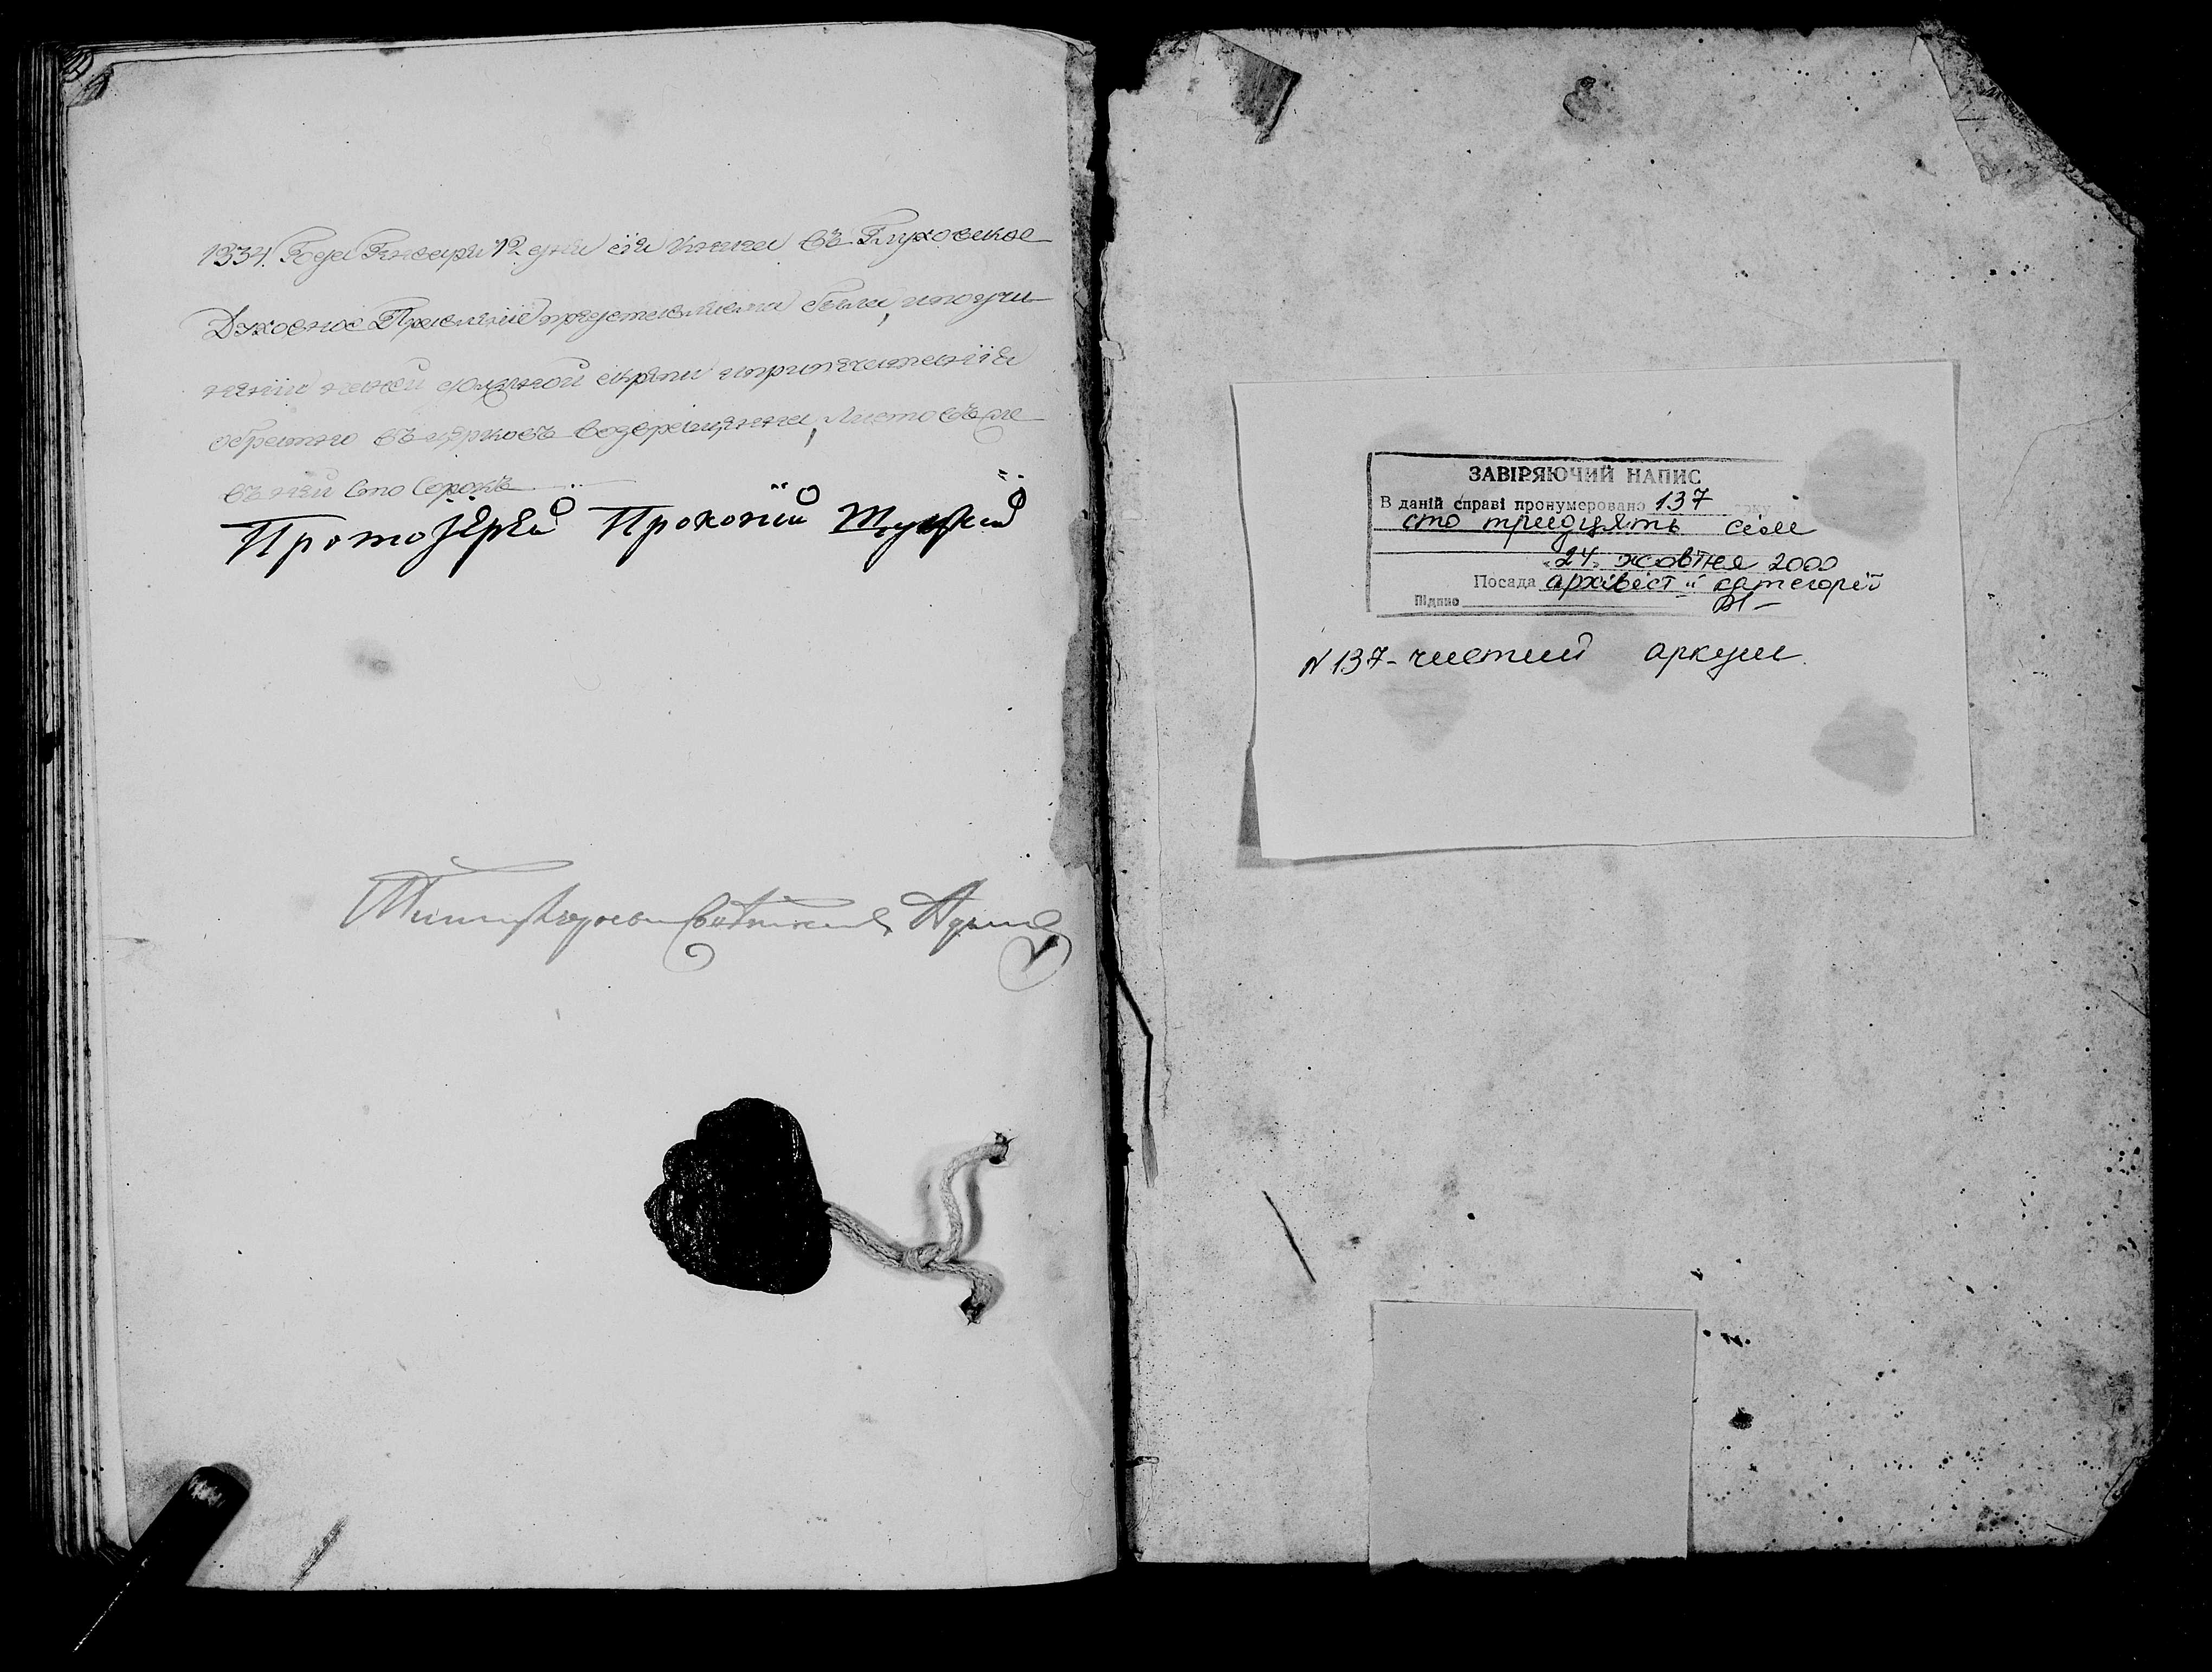 1834. Года Генваря 12 дня сія Книга въ Глуховское
Духовное Правленіе представлена была, и по учи
неніи на ней должной скрепы и припечатанія
обратно въ церковь возвращенна, Листовъ же
въ ней Сто Сорокъ
Протоіерей Прокопій
ЗАВІРЯЮЧИЙ НАПИС
В даній справі пронумеровано 137
сто тридцять сім
„24„ жовтня 2000
Посада архівіст II категорії
Підпис
N 137 - чистий аркуш.